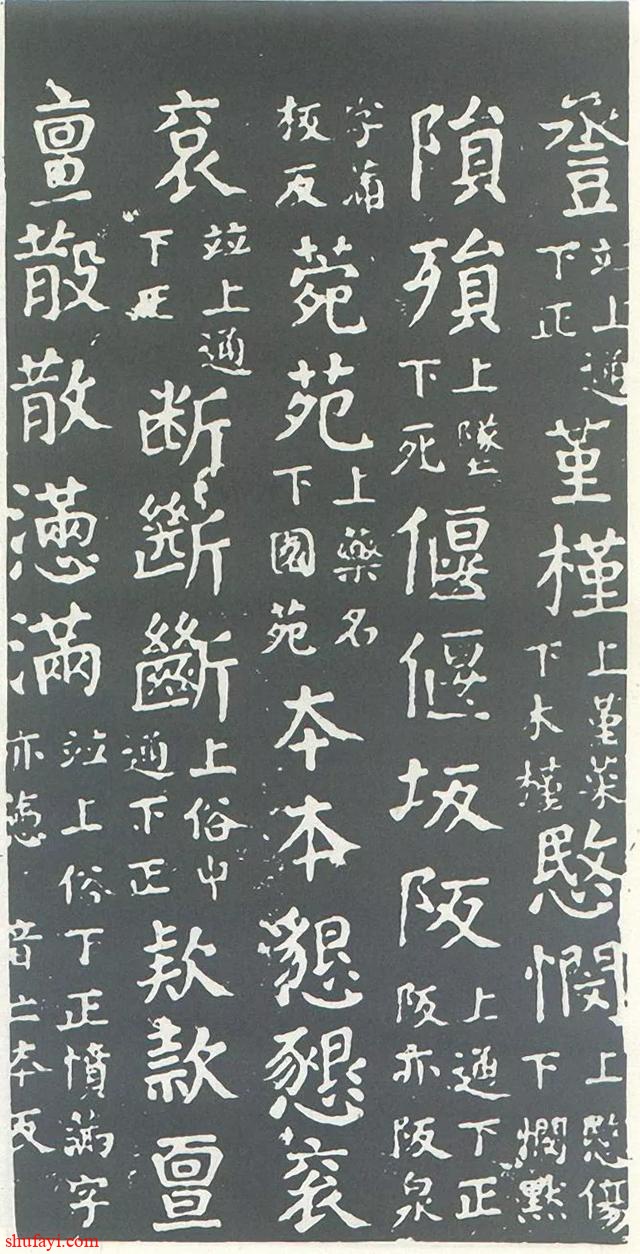 竝上通下正堇槿上堇菜下木槿愍憫上愍傷下憫默
隕殞上墜下死偃偃坂阪上通下正阪亦阪泉
字蒲板反菀苑上藥名下園苑夲本懇懇衮
衮竝上通下正断斷上俗中通下正欵款亶
亶散散懣滿竝上俗下正憤滿字亦懣音亡本反
shufayi.com